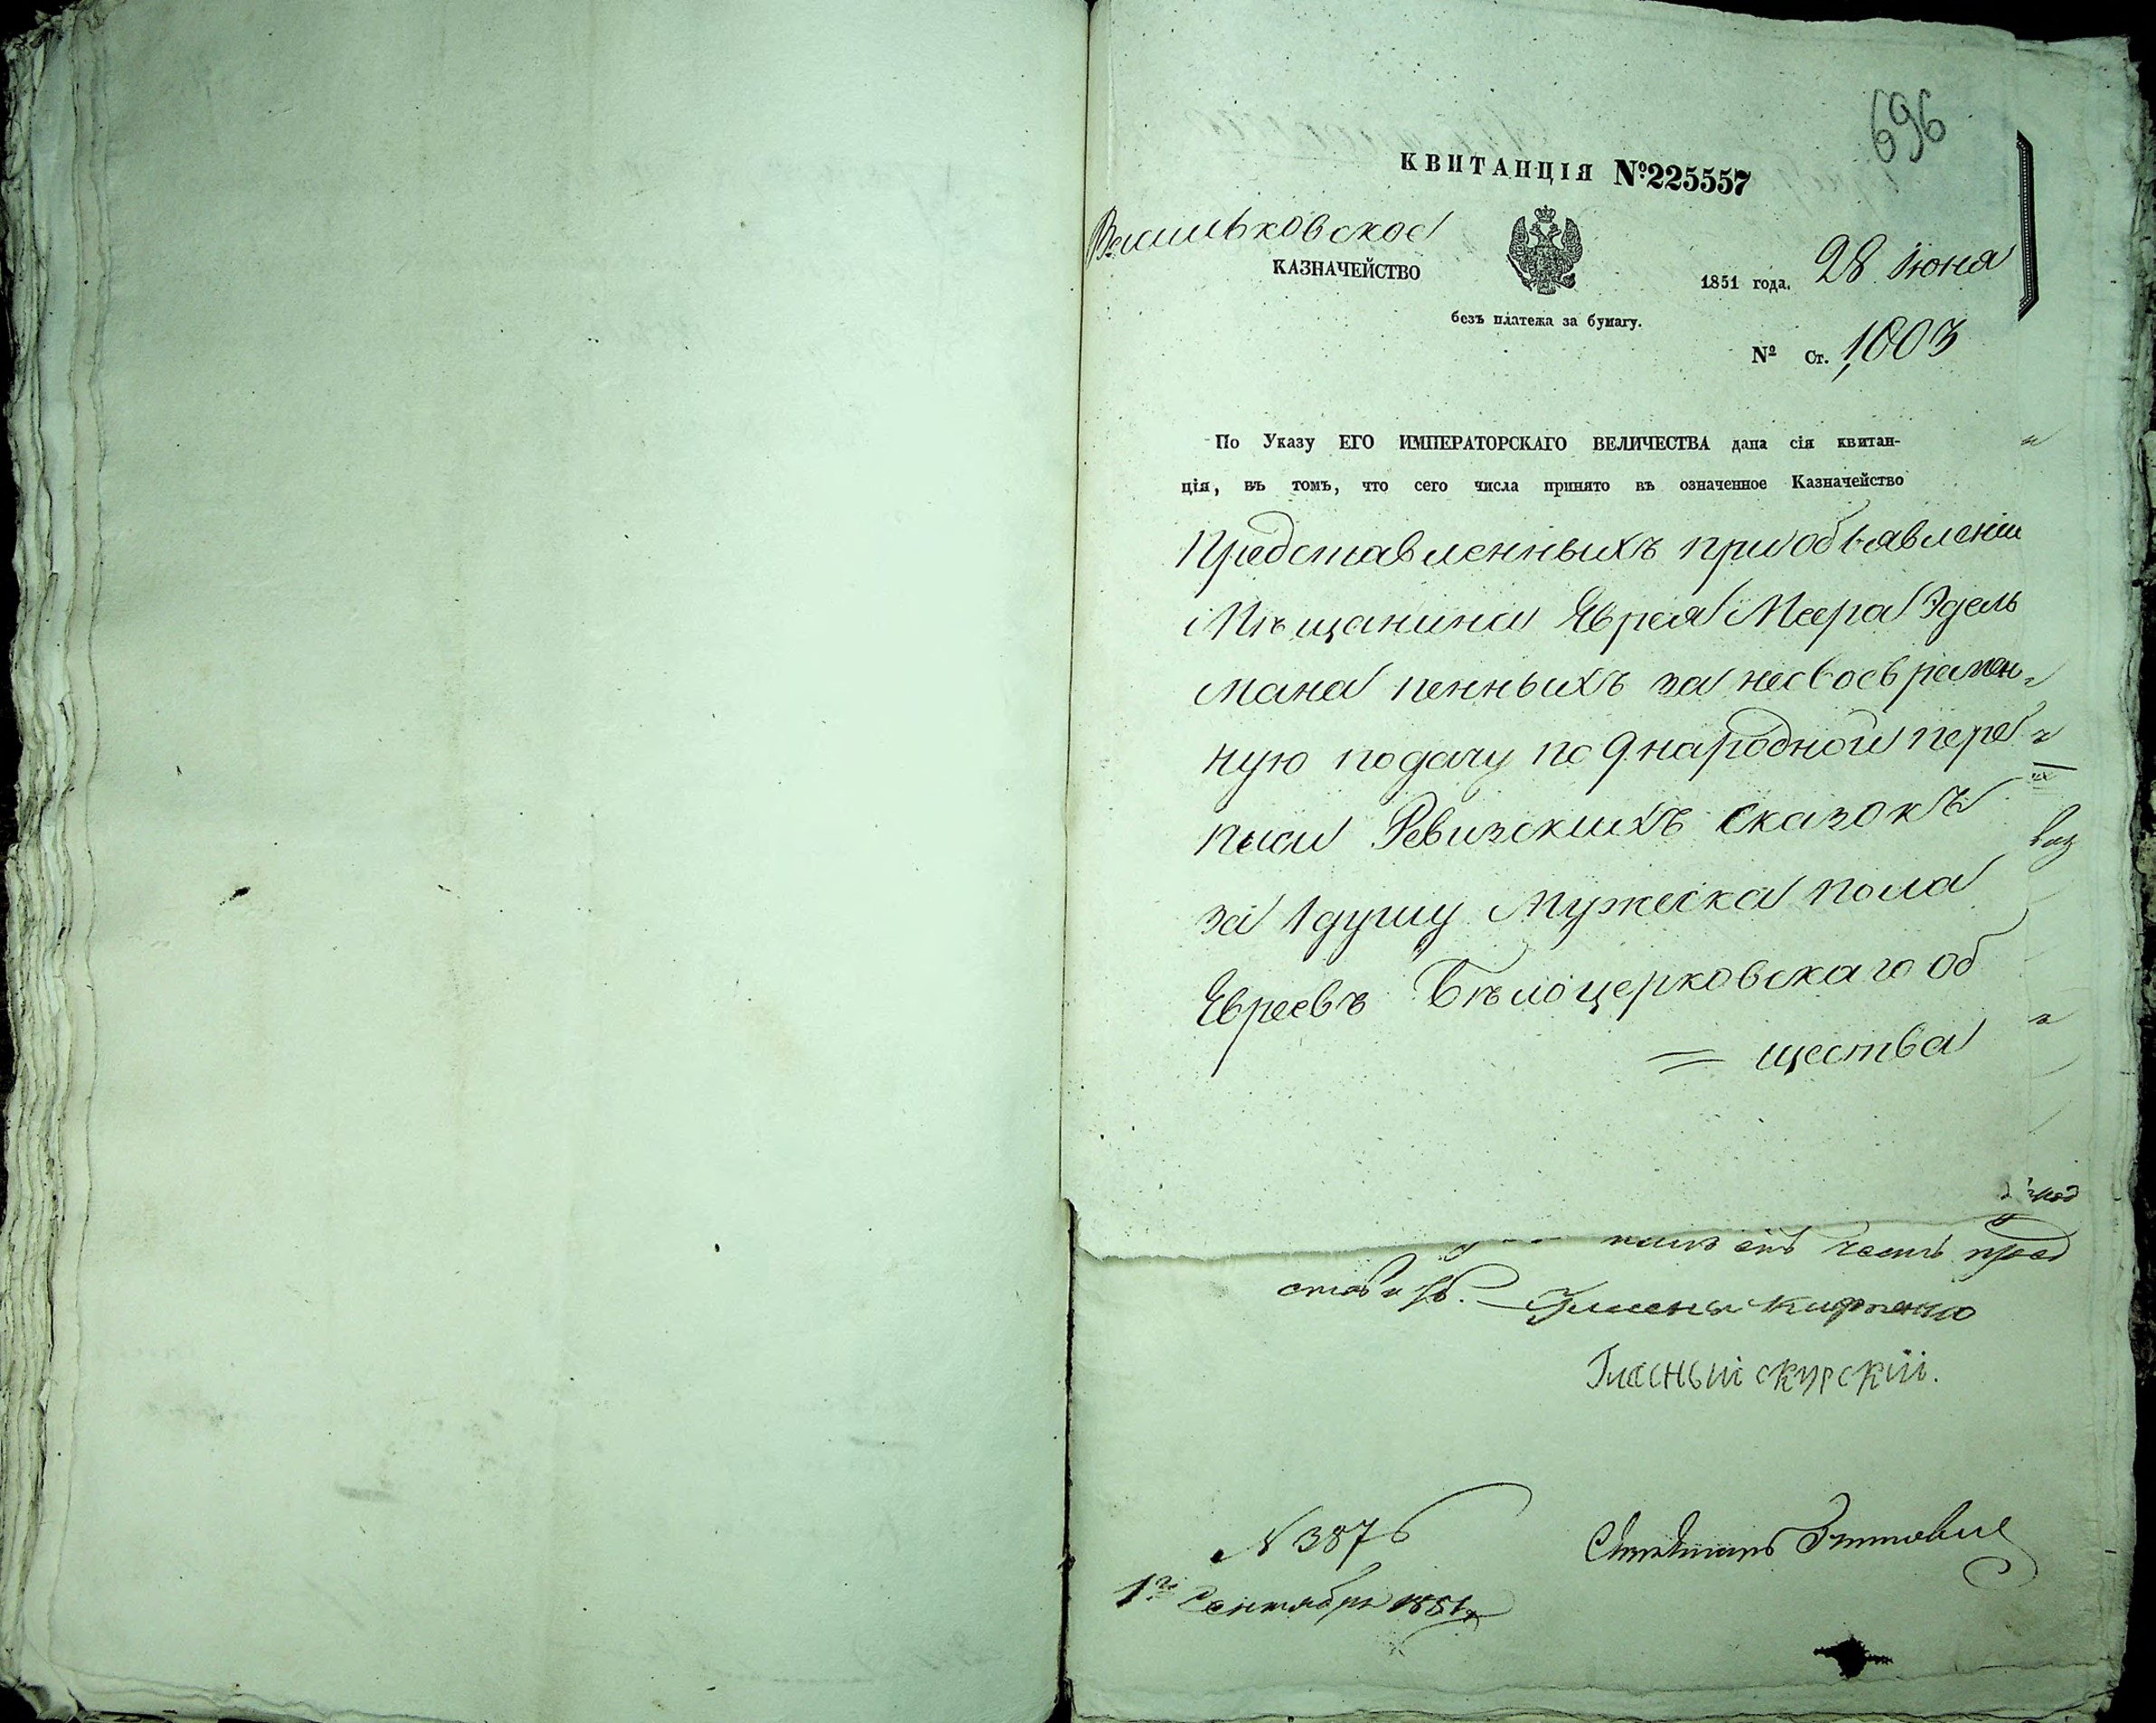 696
КВИТАНЦІЯ №225557
Васильковское
КАЗНАЧЕЙСТВО
1851 года. 28 Іюня
безъ платежа за бумагу.
№ Ст. 1,803
По Указу ЕГО ИМПЕРАТОРСКАГО ВЕЛИЧЕСТВА дана сія квитан-
ція, въ томъ, что сего числа принято въ означенное Казначейство
Представленныхъ при объявленіи
Мѣщанина Еврея Меера Эдель
мана пенныхъ за несвоевремен-
ную подачу по 9 народной пере
писи Ревизскихъ сказокъ
за 1 душу Мужеска пола
Евреевъ Бѣлоцерковскаго об
= щества
честь пред
ставить.
Гласный скурскій.
N 3876
1го Сентября 1851 г.